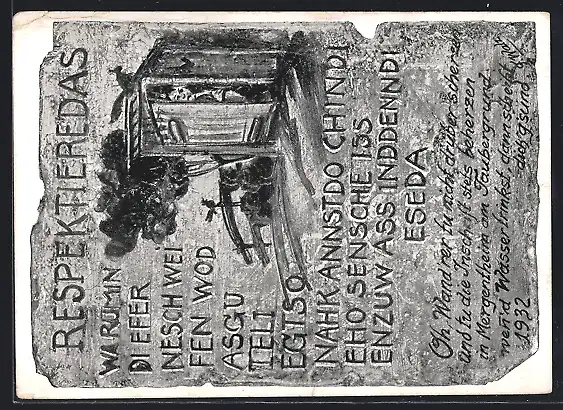 RESPEKTIEREDAS
WARUMIN
DIEFER
NESCHWEI
FEN WOD
ASGU
TELI
EGTSO
NAHKANNSTDO CHINDI
EHO SENSCHEISS
ENZUWASS INDDENNDI
ESEDA
Oh, Wand'rer tu nicht drüber scherzen
und tu die Inschrift stets beherzen
in Mergentheim am Taubergrund
nen'd Wasser trinkst, dann scheißt
di g'sund
1932